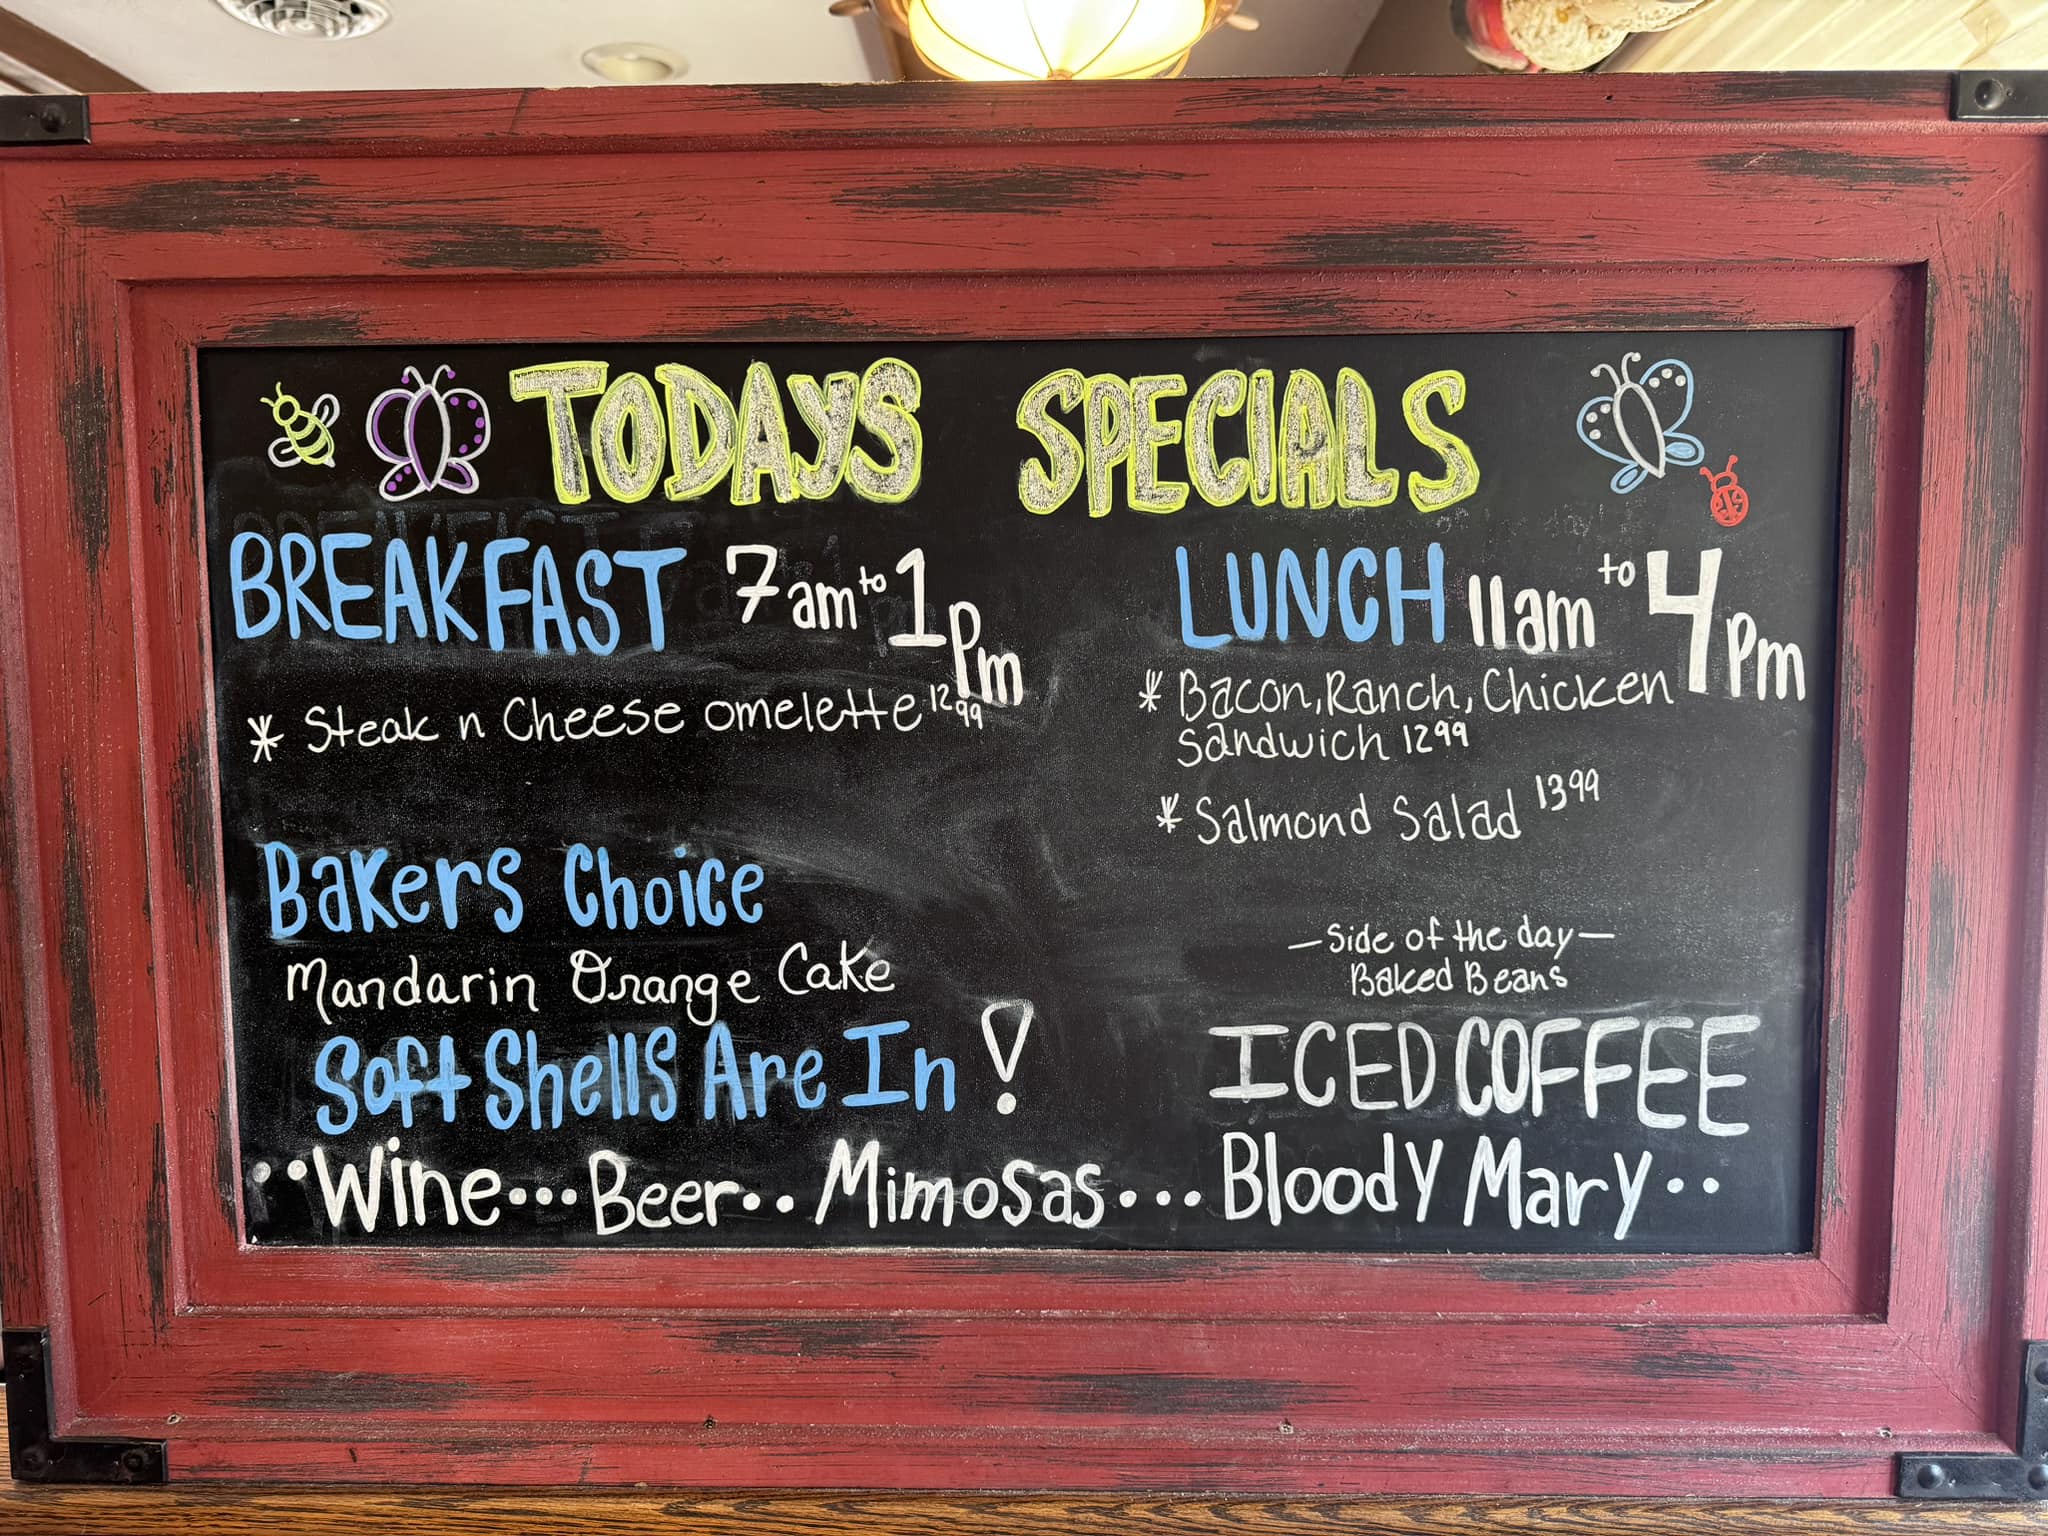 TODAYS SPECIALS
BREAKFAST 7am to 1pm
* Steak n Cheese omelette 12 99
Bakers Choice
Mandarin Orange Cake
Soft Shells Are In!
LUNCH 11am to 4pm
* Bacon, Ranch, Chicken
Sandwich 12 99
* Salmond Salad 13 99
—Side of the day—
Baked Beans
ICED COFFEE
..Wine...Beer..Mimosas...Bloody Mary..